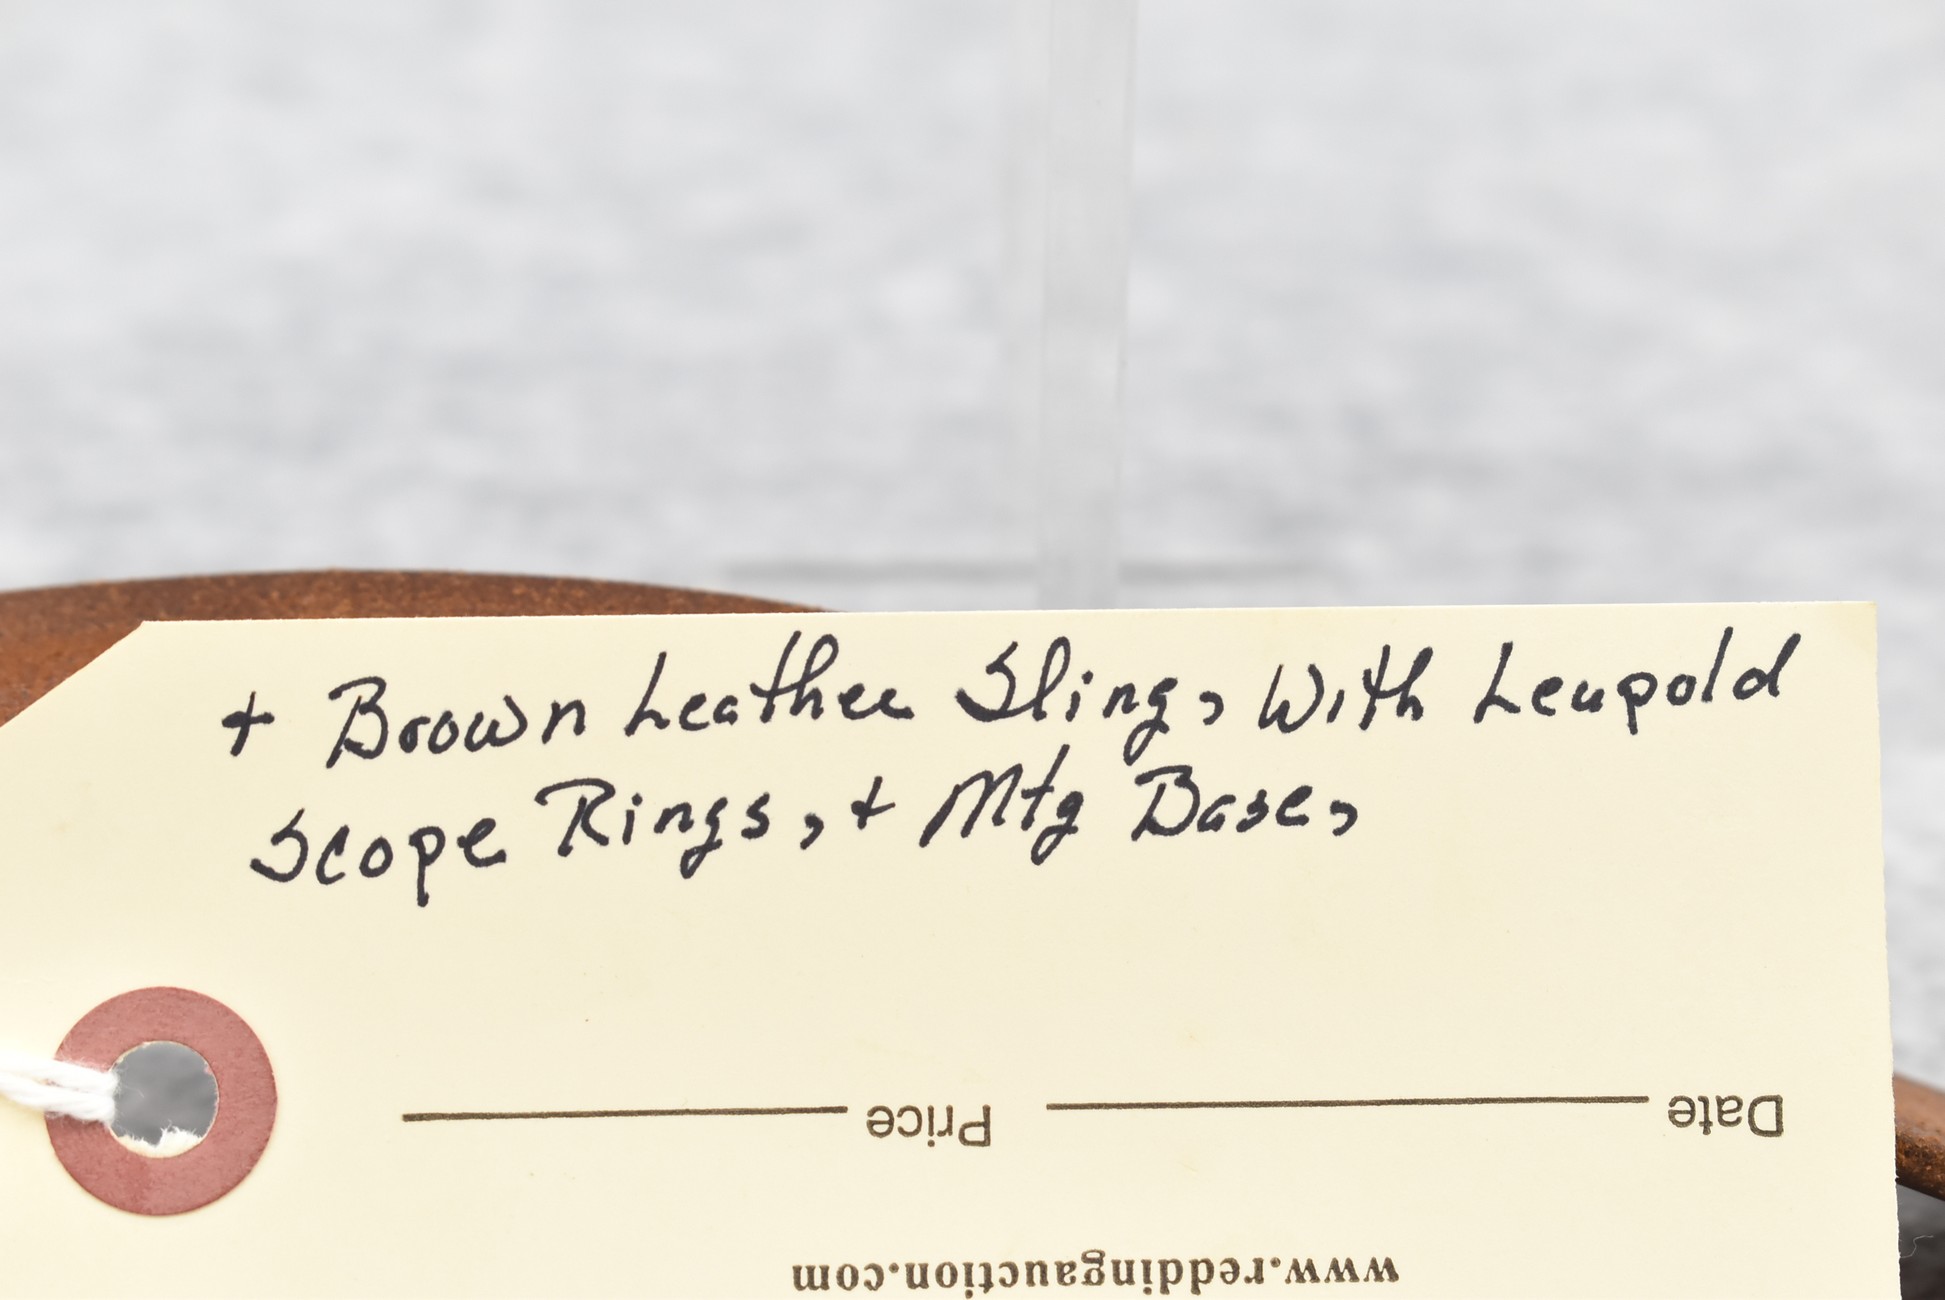 + Brown Leather Sling, With Leupold
Scope Rings, + Mtg Base,
Price
Date
www.reddingauction.com